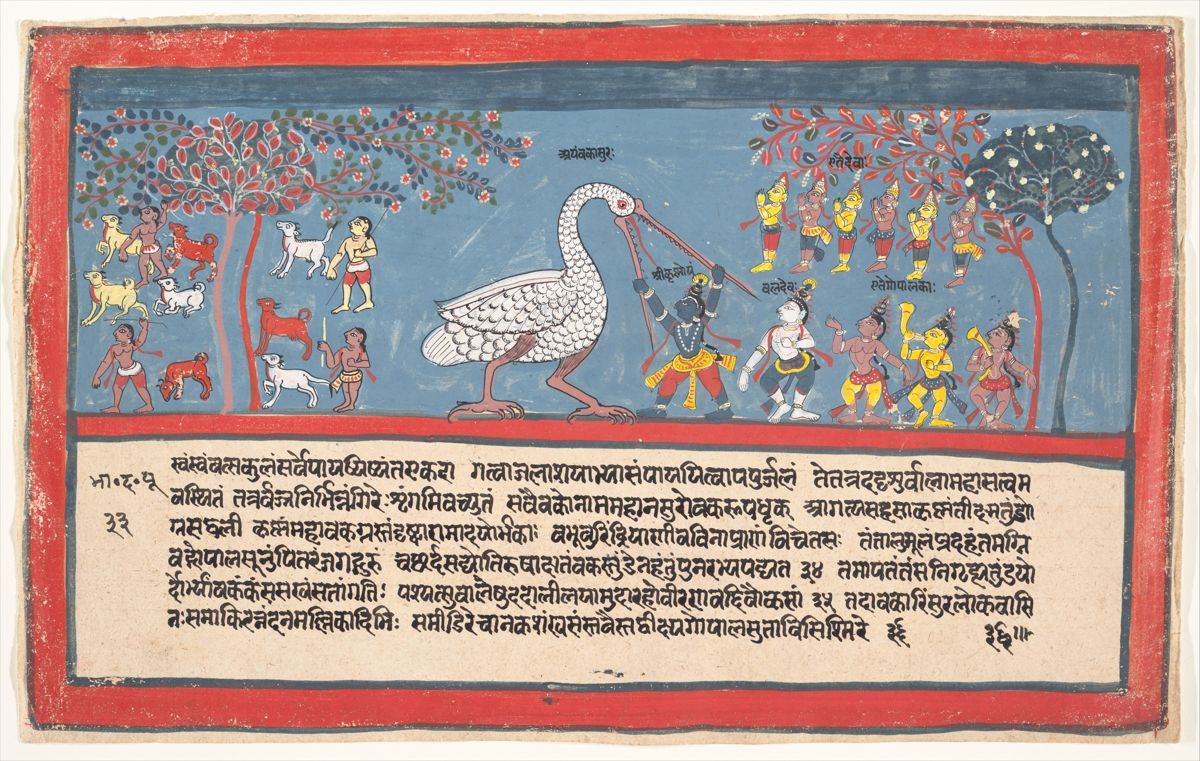 अयंबकासुरः
एतेदेवाः
श्रीकृष्णोयं
बलदेवः
एतेगोपालकाः
स्वंस्वंवत्सकुलंसर्वेपाययिष्यंतएकदा गत्वाजलाशयाभ्यासंपाययित्वापपुर्जलं तेतत्रददृशुर्बालामहासत्वम
भा॰द॰पू
वस्थितं तत्रसुर्वज्रनिर्भिन्नंगिरेःशृंगमिवच्युतं सवैबकोनाममहानसुरोबकरूपधृक् आगत्यसहसाकृष्णंतीक्ष्णतुंडो
३३
ग्रसद्बली कृष्णंमहाबकग्रस्तंदृष्ट्वारामादयोर्भकाः बभूवुरिंद्रियाणीवविनाप्राणंविचेतसः तंतालुमूलंप्रदहंतमग्नि
वद्गोपालसूनुंपितरंजगद्गुरुं चच्छर्दसद्योतिरुषाक्षतंबकस्तुंडेनहंतुंपुनरभ्यपद्यत ३४ तमापतंतंसनिगृह्यतुंडयो
र्दोर्भ्यांबकंकंससखंसतांगतिः पश्यत्सुबालेषुददारलीलयामुदावहोवीरणवद्दिवौकसां ३५ तदाबकारिंसुरलोकवासि
नःसमाकिरन्नंदनमल्लिकादिभिः समीडिरेचानकशंखसंस्तवैस्तद्वीक्ष्यगोपालसुताविसिस्मिरे ३६ ३६॥